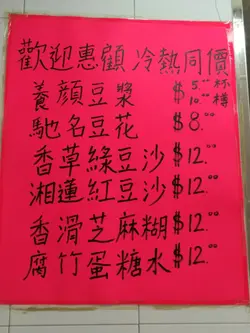 歡迎惠顧 冷熱同價
養顏豆漿 $5.⁰⁰杯 10.⁰⁰樽
馳名豆花 $8.⁰⁰
香草綠豆沙 $12.⁰⁰
湘蓮紅豆沙 $12.⁰⁰
香滑芝麻糊 $12.⁰⁰
腐竹蛋糖水 $12.⁰⁰